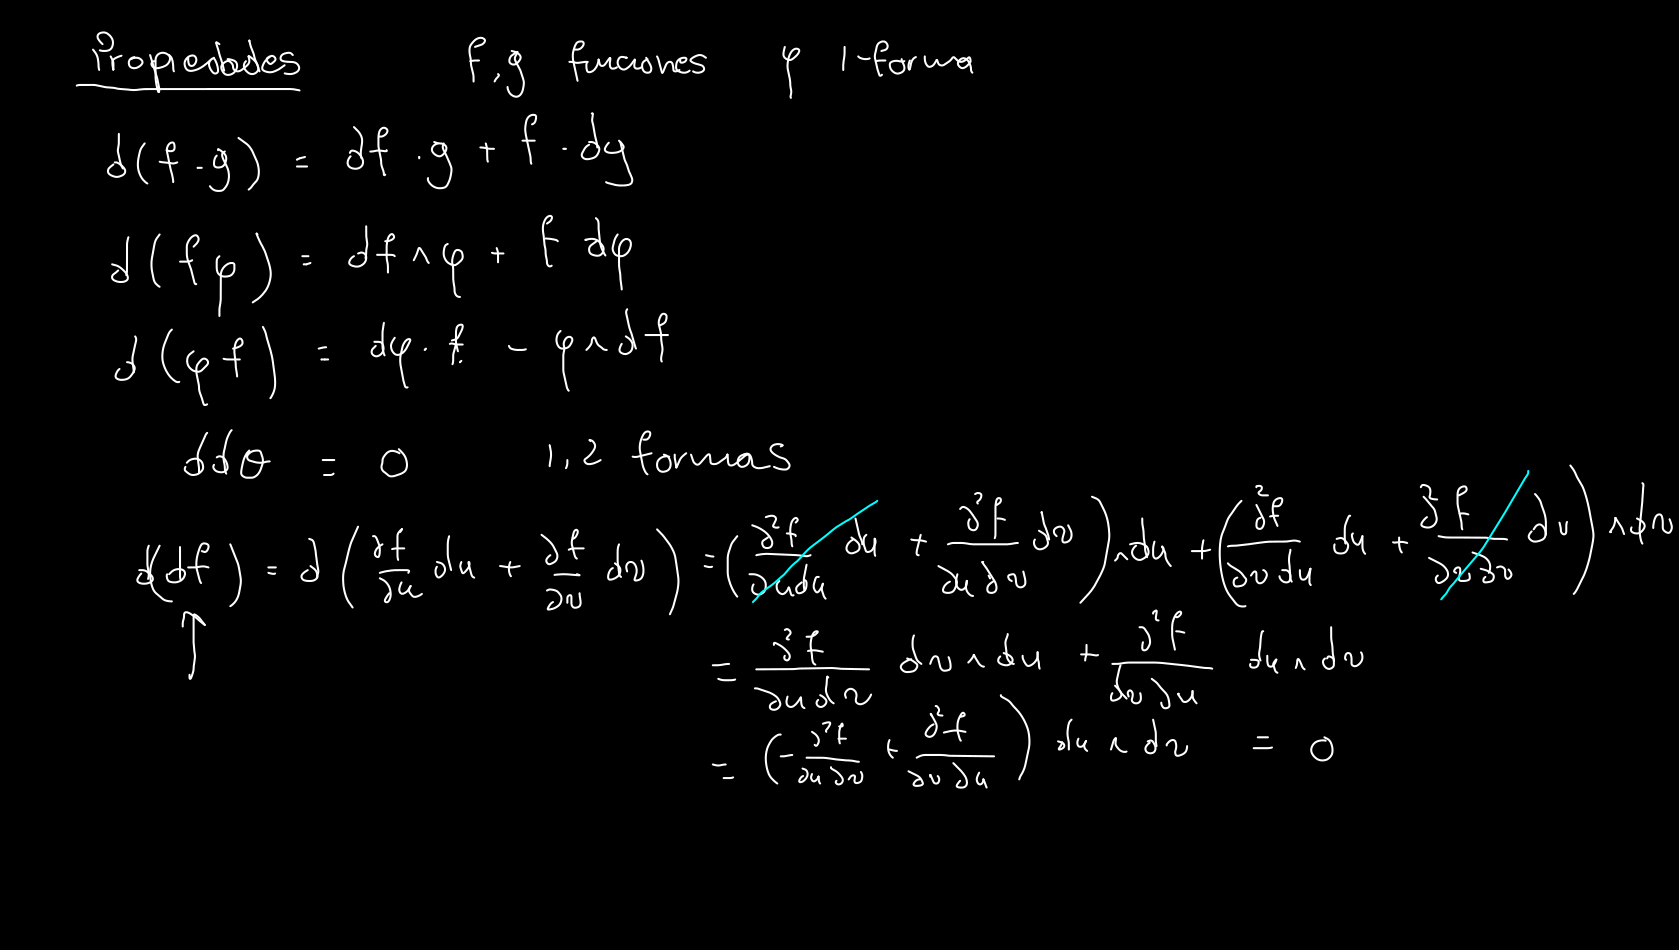 Propiedades f, g funciones φ 1-forma
d(f·g) = df·g + f·dg
d(fφ) = df∧φ + f dφ
d(φf) = dφ·f - φ∧df
ddθ = 0 1,2 formas
d(df) = d(∂f/∂u du + ∂f/∂v dv) = (∂²f/∂u∂u du + ∂²f/∂u∂v dv)∧du + (∂²f/∂v∂u du + ∂²f/∂v∂v dv)∧dv
↑ = ∂²f/∂u∂v dv∧du + ∂²f/∂v∂u du∧dv
= (-∂²f/∂u∂v + ∂²f/∂v∂u) du∧dv = 0